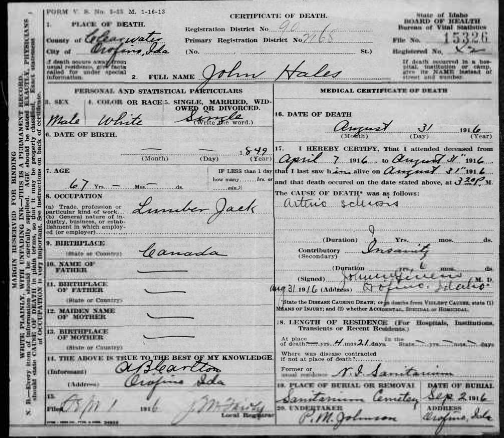 FORM V. S. No. 5-25 M. 1-16-13
CERTIFICATE OF DEATH
State of Idaho
BOARD OF HEALTH
Bureau of Vital Statistics
1. PLACE OF DEATH.
County of Clearwater
City of Orofino, Ida
Registration District No. 90
Primary Registration District No.
(No. St.)
File No. 15326
Registered No.
If death occurs away from usual residence, give facts called for under special information.
If death occurred in a hospital, institution, or camp, give its NAME instead of street and number.
2. FULL NAME John Hales
PERSONAL AND STATISTICAL PARTICULARS
3. SEX
Male
4. COLOR OR RACE
White
5. SINGLE, MARRIED, WIDOWED OR DIVORCED.
Single
(Write the word.)
6. DATE OF BIRTH.
1849
(Month) (Day) (Year)
7. AGE
67 Yrs. Mos. ds.
IF LESS than 1 day
how many hrs. or mins?
8. OCCUPATION
(a) Trade, profession or particular kind of work
(b) General nature of industry, business, or establishment in which employed (or employer)
Lumber Jack
9. BIRTHPLACE
(State or Country)
Canada
10. NAME OF FATHER
11. BIRTHPLACE OF FATHER
(State or Country)
12. MAIDEN NAME OF MOTHER
13. BIRTHPLACE OF MOTHER
(State or Country)
14. THE ABOVE IS TRUE TO THE BEST OF MY KNOWLEDGE
(Informant) Carlton
(Address) Orofino Ida
15.
Filed 1 1916
Local Registrar
MEDICAL CERTIFICATE OF DEATH
16. DATE OF DEATH
August 31 1916
(Month) (Day) (Year)
17. I HEREBY CERTIFY, That I attended deceased from
April 7 1916 to August 31 1916
that I last saw him alive on August 31 1916
and that death occurred on the date stated above, at 3 20 M.
The CAUSE OF DEATH was as follows:
yrs. mos. ds.
Contributory Insanity
(Secondary)
yrs. 6 mos. ds.
(Signed) M. D.
Aug 31 1916 (Address) Orofino, Idaho
State the DISEASE CAUSING DEATH, or in deaths from VIOLENT CAUSES, state (1) MEANS OF INJURY; and (2) whether ACCIDENTAL, SUICIDAL or HOMICIDAL.
18. LENGTH OF RESIDENCE (For Hospitals, Institutions, Transients or Recent Residents.)
At place of death yrs. 4 mos. 21 days. In the State yrs. mos. ds.
Where was disease contracted
if not at place of Death?
Former or usual residence N. I. Sanitarium
19. PLACE OF BURIAL OR REMOVAL
Sanitarium Cemetery
DATE OF BURIAL
Sep 2 1916
20. UNDERTAKER
P. M. Johnson
ADDRESS
Orofino, Ida